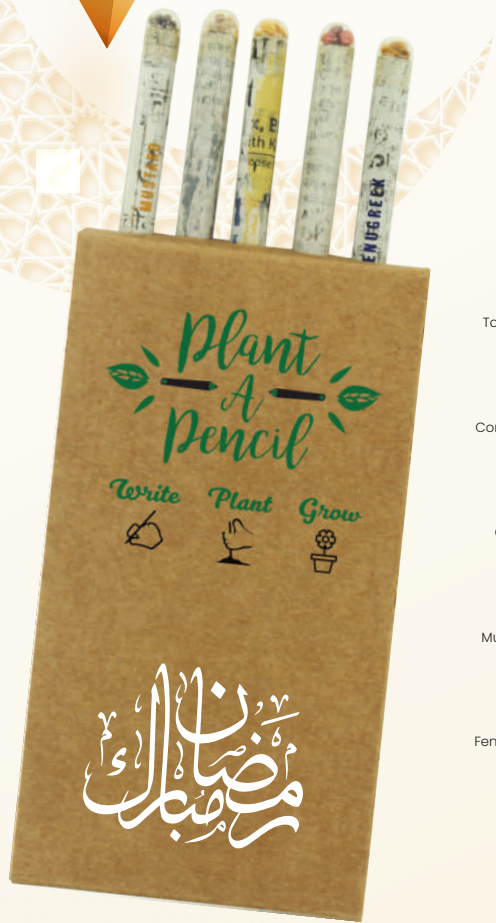 MUSTARD
ENUGREEK
Plant
A
Pencil
Write Plant Grow
رمضان
مبارك
To
Cor
Mu
Fen